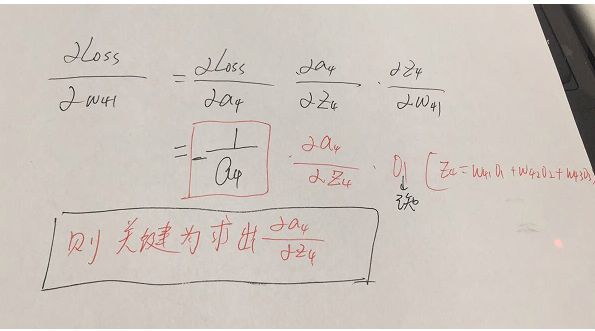 ∂Loss/∂w41 = ∂Loss/∂a4 · ∂a4/∂z4 · ∂z4/∂w41
= -1/a4 · ∂a4/∂z4 · o1 [z4=w41o1+w42o2+w43o3
已知
则关键为求出 ∂a4/∂z4